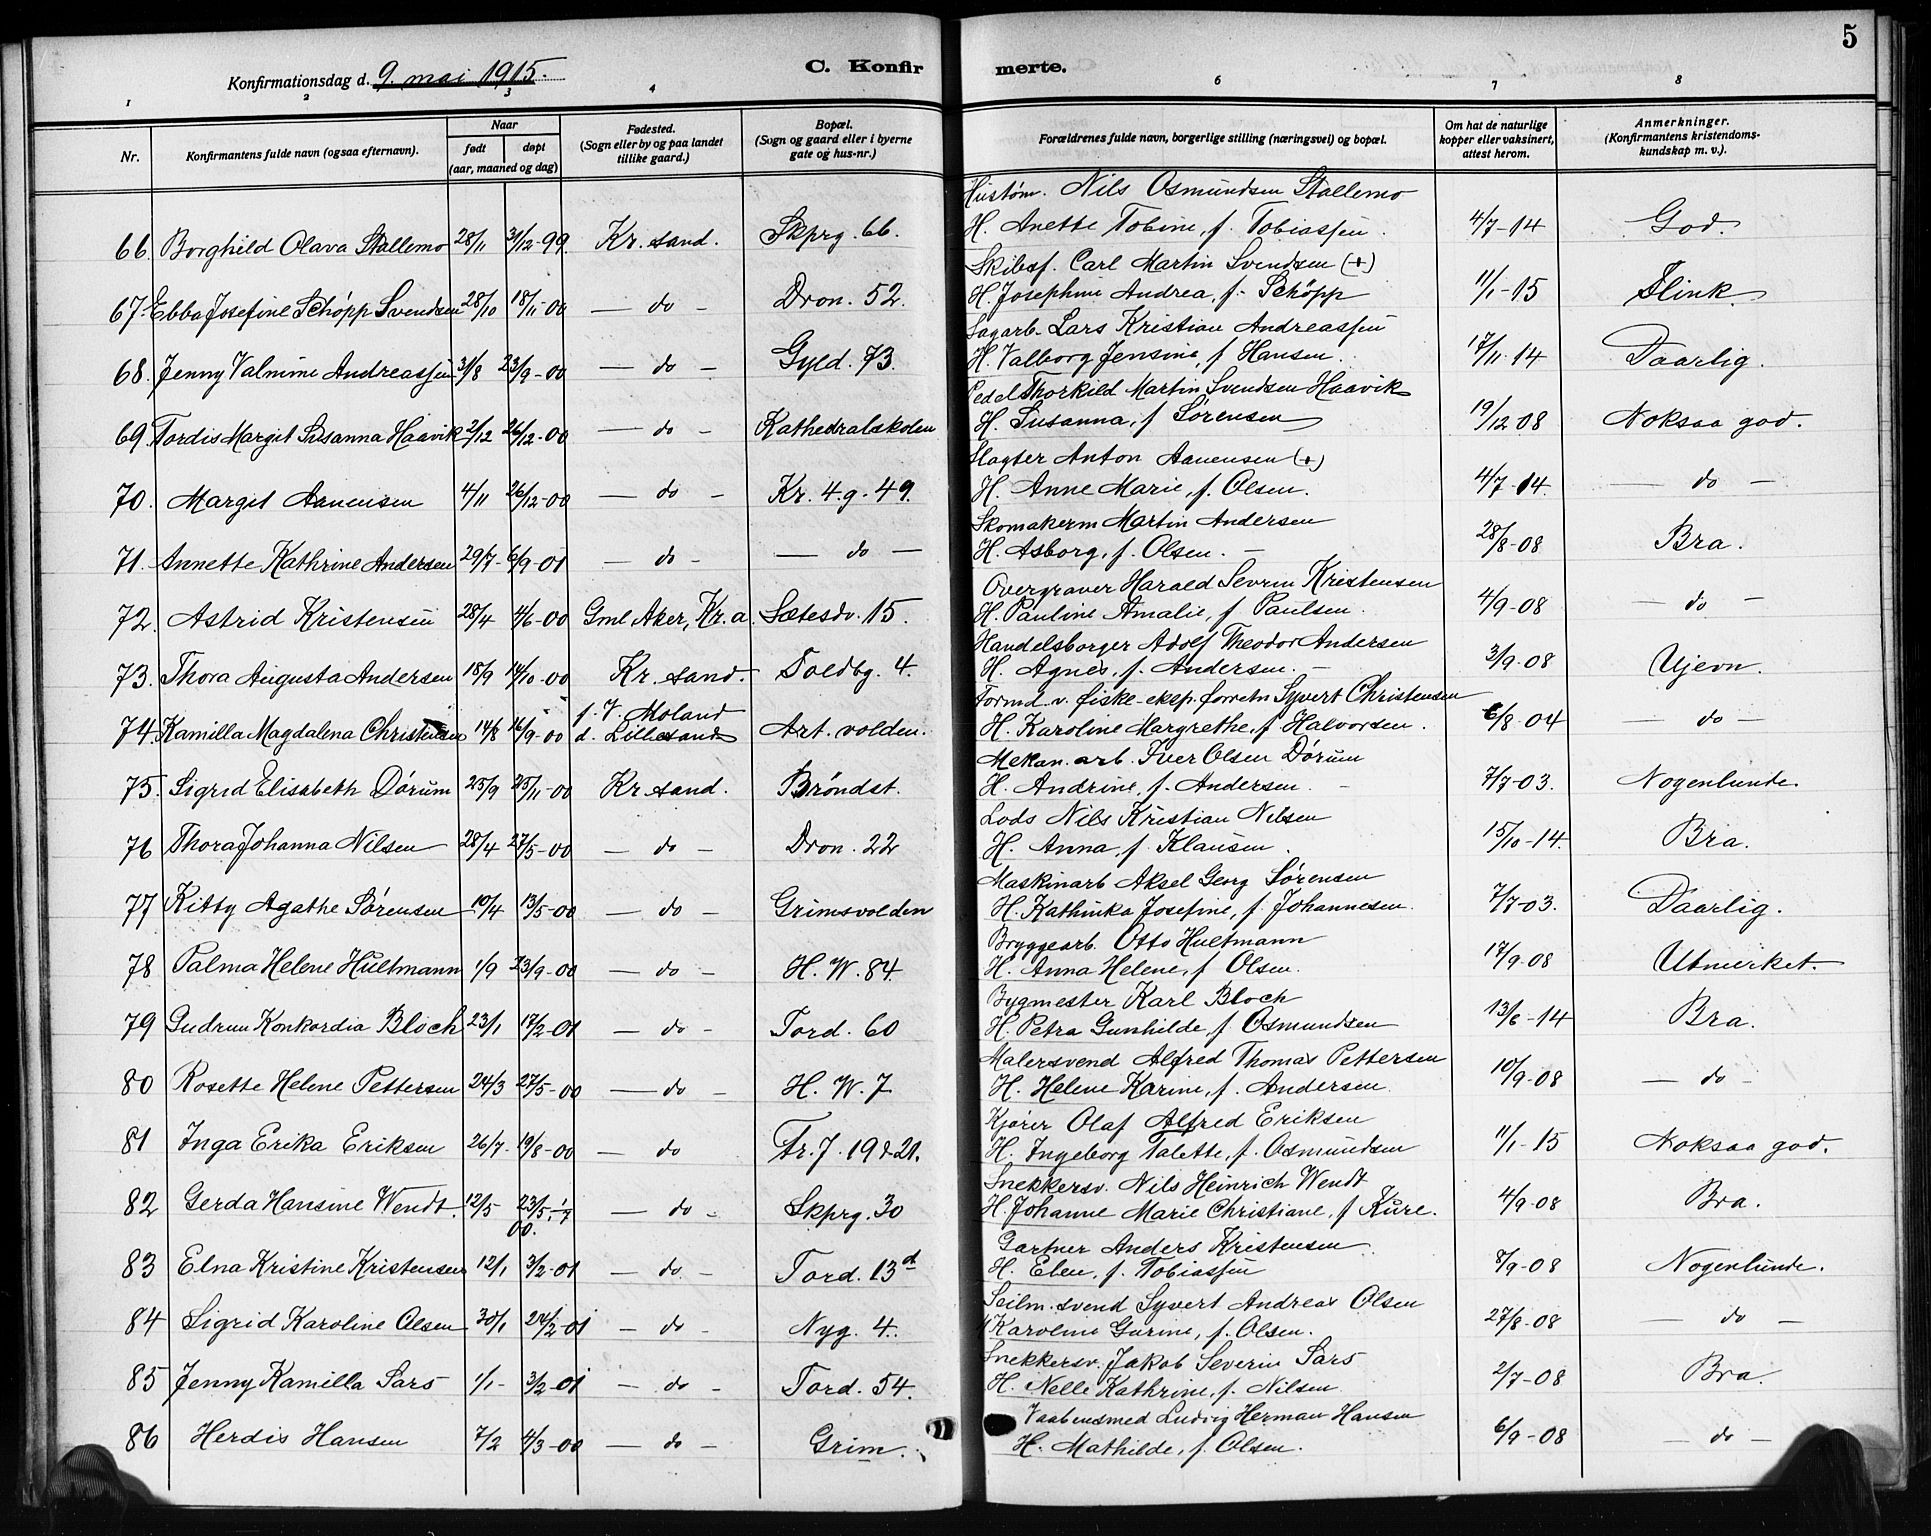 5
Konfirmationsdag d. 9. mai 1915.
C. Konfirmerte.
1 2 3 4 6 7 8
Nr.
Konfirmantens fulde navn (ogsaa efternavn).
Naar
født
døpt
(aar, maaned og dag)
Fødested.
(Sogn eller by og paa landet
tillike gaard.)
Bopæl.
(Sogn og gaard eller i byerne
gate og hus-nr.)
Forældrenes fulde navn, borgerlige stilling (næringsvei) og bopæl.
Om hat de naturlige
kopper eller vaksinert,
attest herom.
Anmerkninger.
(Konfirmantens kristendoms-
kundskap m. v.).
Hustøm. Nils Osmundsen Stallemo
66. Borghild Olava Stallemo 28/11 31/12-99. Kr.sand. Skprg. 66. H. Anette Tobine, f. Tobiassen. 4/7-14 God.
Skibsf. Carl Martin Svendsen (+)
67. Ebba Josefine Schöpp Svendsen 28/10 18/11-00 — do — Dron. 52. H. Josephine Andrea, f. Schöpp 11/1-15 Flink.
Sagarb. Lars Kristian Andreassen
68. Jenny Valmine Andreassen 31/8 23/9-00 — do — Gyld. 73. H. Valborg Jensine, f. Hansen. 17/11-14 Daarlig.
Pedel Thorkild Martin Svendsen Haavik
69. Tordis Margit Susanna Haavik 2/12 26/12-00 — do — Kathedralskolen H. Susanna, f. Sørensen 19/12 08 Noksaa god.
Slagter Anton Aanensen (+)
70. Margit Aanensen 4/11 26/12-00 — do — Kr. 4.g. 49. H. Anne Marie, f. Olsen. 4/7-14. — do —
Skomakerm Martin Andersen
71. Annette Kathrine Andersen 29/7- 6/9-01 — do — — do — H. Asborg, f. Olsen. — 28/8-08 Bra.
Overgraver Harald Severin Kristensen
72. Astrid Kristensen 28/4 4/6-00 Gml Aker, Kr.a Sætesdv. 15. H. Pauline Amalie, f. Paulsen. 4/9-08 — do —
Handelsborger Adolf Theodor Andersen
73. Thora Augusta Andersen 18/9 14/10-00 Kr.sand. Toldbg. 4. H. Agnes, f. Andersen. — 3/9-08 Ujevn.
Formd v. fiske-eksp. forretn Syvert Christensen
74. Kamilla Magdalena Christensen 14/8 16/9-00 f. V. Moland
d. Lillesand Art. volden. H. Karoline Margrethe, f Halvorsen. 6/8-04 — do —
Mekan. arb. Iver Olsen Dörum
75. Sigrid Elisabeth Dörum 25/9 25/11-00 Kr.sand. Bröndst. H. Andrine, f. Andersen. — 7/7-03. Nogenlunde.
Lods Nils Kristian Nilsen
76 Thora Johanna Nilsen 28/4 27/5-00 — do — Dron. 22 H. Anna, f. Klausen. 15/10-14. Bra.
Maskinarb Aksel Georg Sørensen
77 Kitty Agathe Sørensen 10/4 13/5-00 — do — Grimsvolden H. Kathinka Josefine, f. Johannesen. 7/7-03. Daarlig.
Bryggearb. Otto Hultmann
78 Palma Helene Hultmann 1/9 23/9-00 — do — H. W. 84. H. Anna Helene, f. Olsen. 17/9-08 Utmerket.
Bygmester Karl Bloch
79 Gudrun Konkordia Bloch 23/1 17/2-01 — do — Tord. 60 H. Petra Gunhilde, f. Osmundsen 13/6-14 Bra.
Malersvend Alfred Thomas Pettersen
80 Rosette Helene Pettersen 24/3 27/5-00 — do — H. W. 7 H. Helene Karine, f. Andersen. 10/9-08 — do —
Kjører Olaf Alfred Eriksen
81 Inga Erika Eriksen 26/7- 19/8-00 — do Fr. 7. 19 & 21. H. Ingeborg Talette, f. Osmundsen 11/1-15 Noksaa god.
Snekkersv. Nils Heinrich Wendt
82 Gerda Hansine Wendt. 12/5 23/5, 1/7
00. — do — Skprg. 30 H. Johanne Marie Christiane, f Kure. 4/9-08 Bra.
Gartner Anders Kristensen
83 Elna Kristine Kristensen 12/1 3/2-01 — do. — Tord. 13d H. Elen, f. Tobiassen 8/9-08 Nogenlunde.
Seilm. svend Syvert Andreas Olsen
84 Sigrid Karoline Olsen 30/1 24/2-01 — do — Nyg. 4. H Karoline Gurine, f. Olsen. 27/8-08 — do —
Snekkersv. Jakob Severin Sars
85 Jenny Kamilla Sars 1/1- 3/2-01 — do — Tord. 54. H. Nelle Kathrine, f. Nilsen 2/7-08 Bra.
Vaabensmed Ludvig Herman Hansen
86 Herdis Hansen 7/2 4/3-00 — do — Grim. H. Mathilde, f. Olsen. 6/9-08 — do —